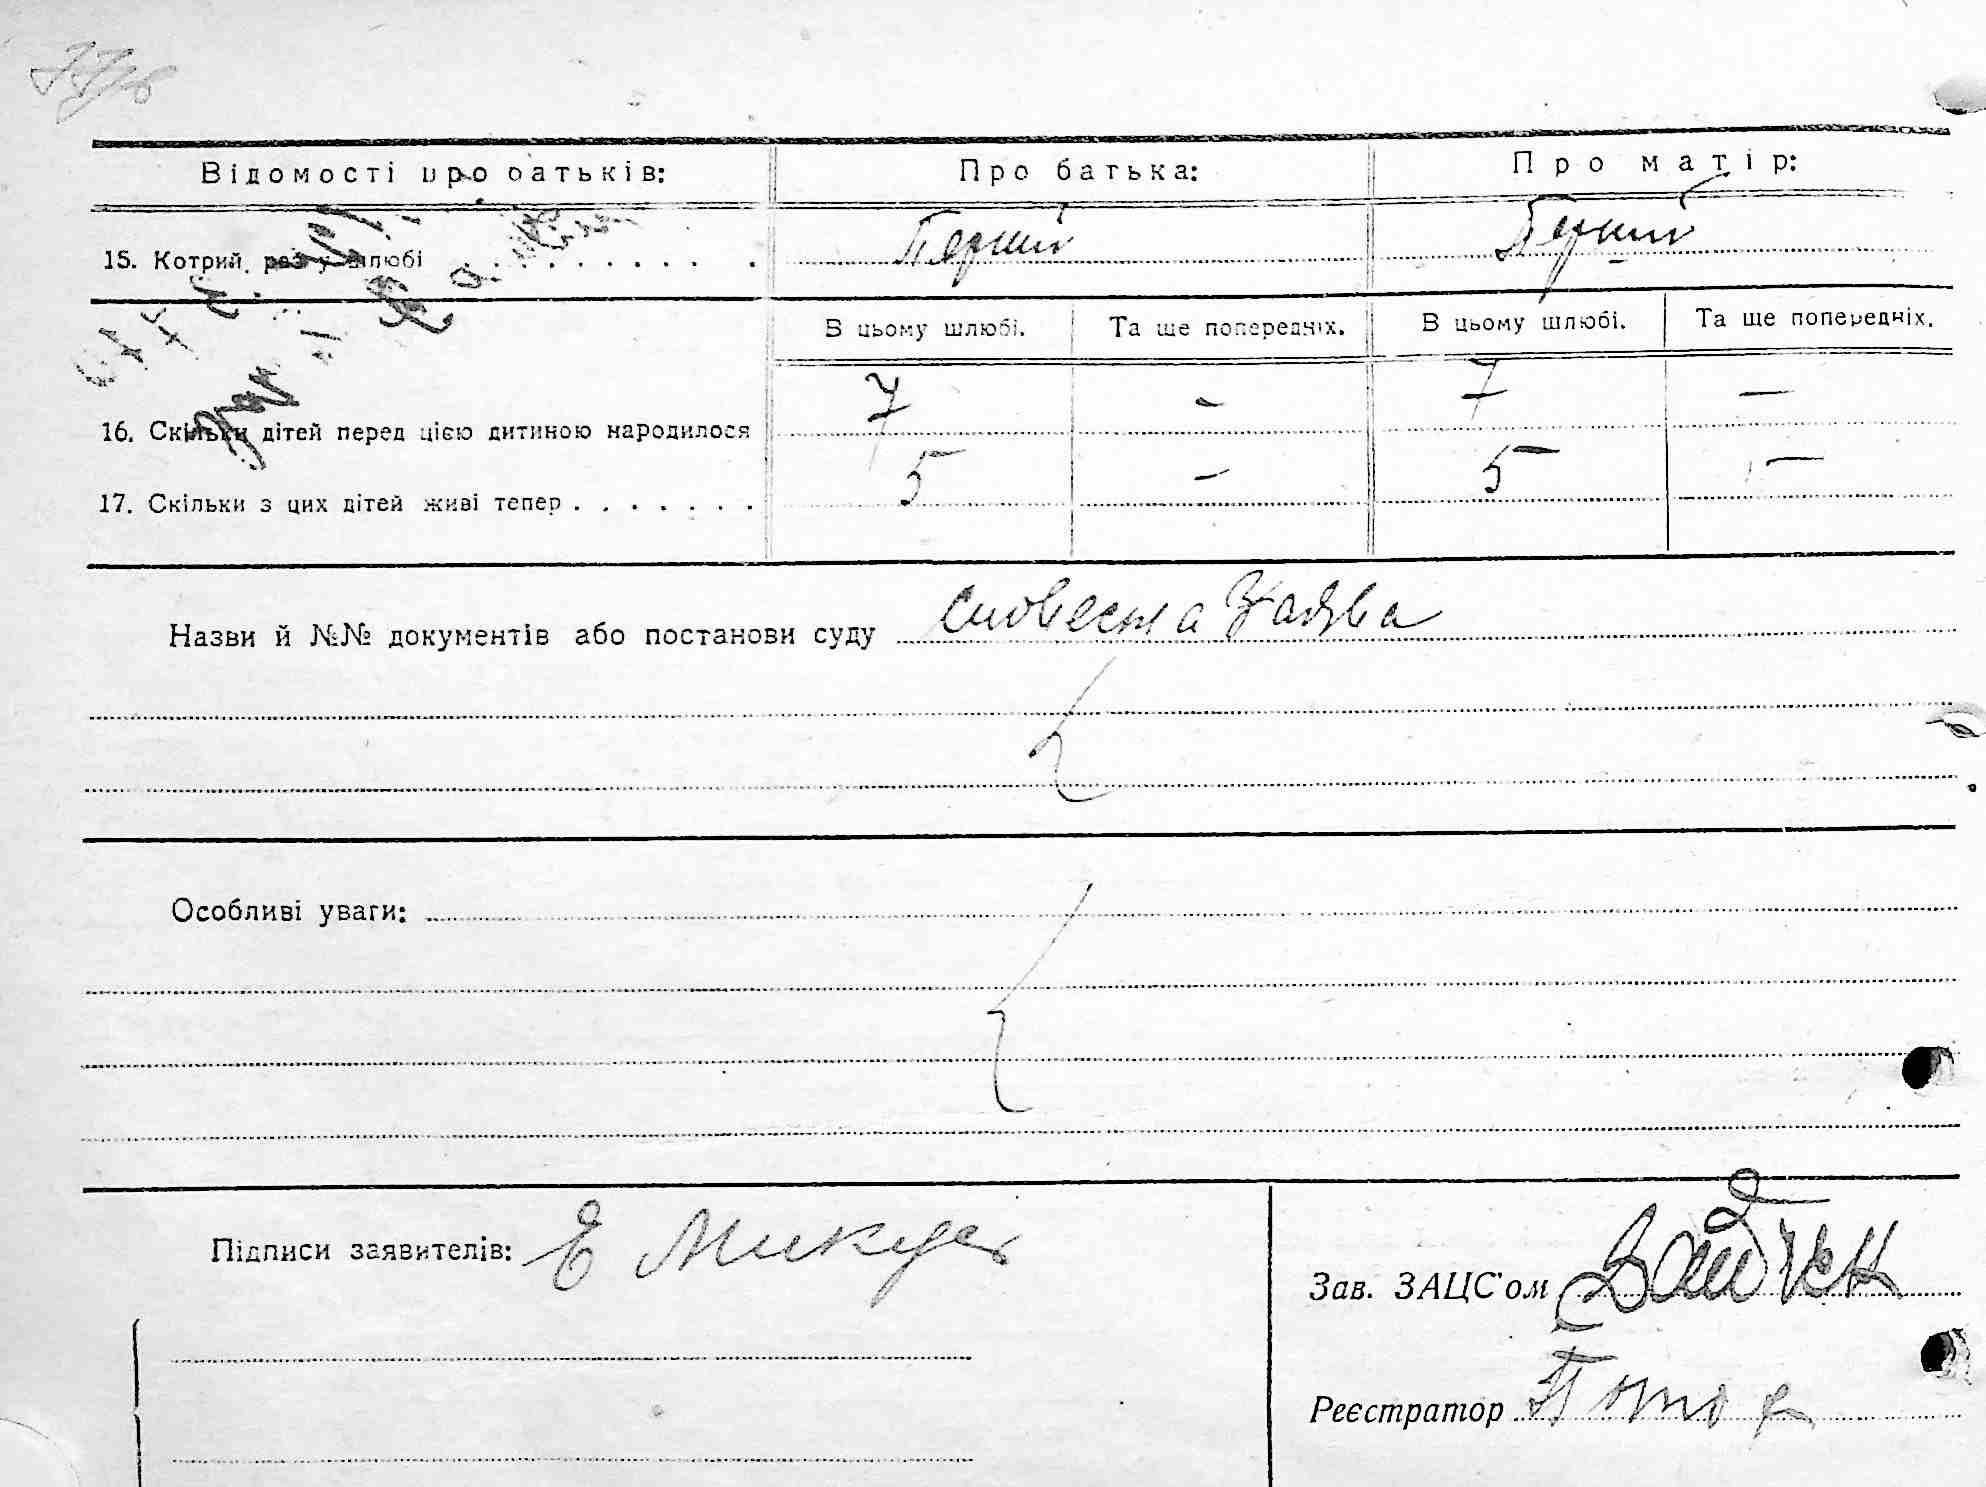 Відомості про батьків: Про батька: Про матір:
15. Котрий раз у шлюбі . . . . . . . . . . Перший Перший
В цьому шлюбі. Та ще попередніх. В цьому шлюбі. Та ще попередніх.
16. Скільки дітей перед цією дитиною народилося 7 - 7 -
17. Скільки з цих дітей живі тепер . . . . . . . 5 - 5 -
Назви й №№ документів або постанови суду словесна Заява
Особливі уваги:
Підписи заявителів: Е
Зав. ЗАЦС'ом
Реєстратор